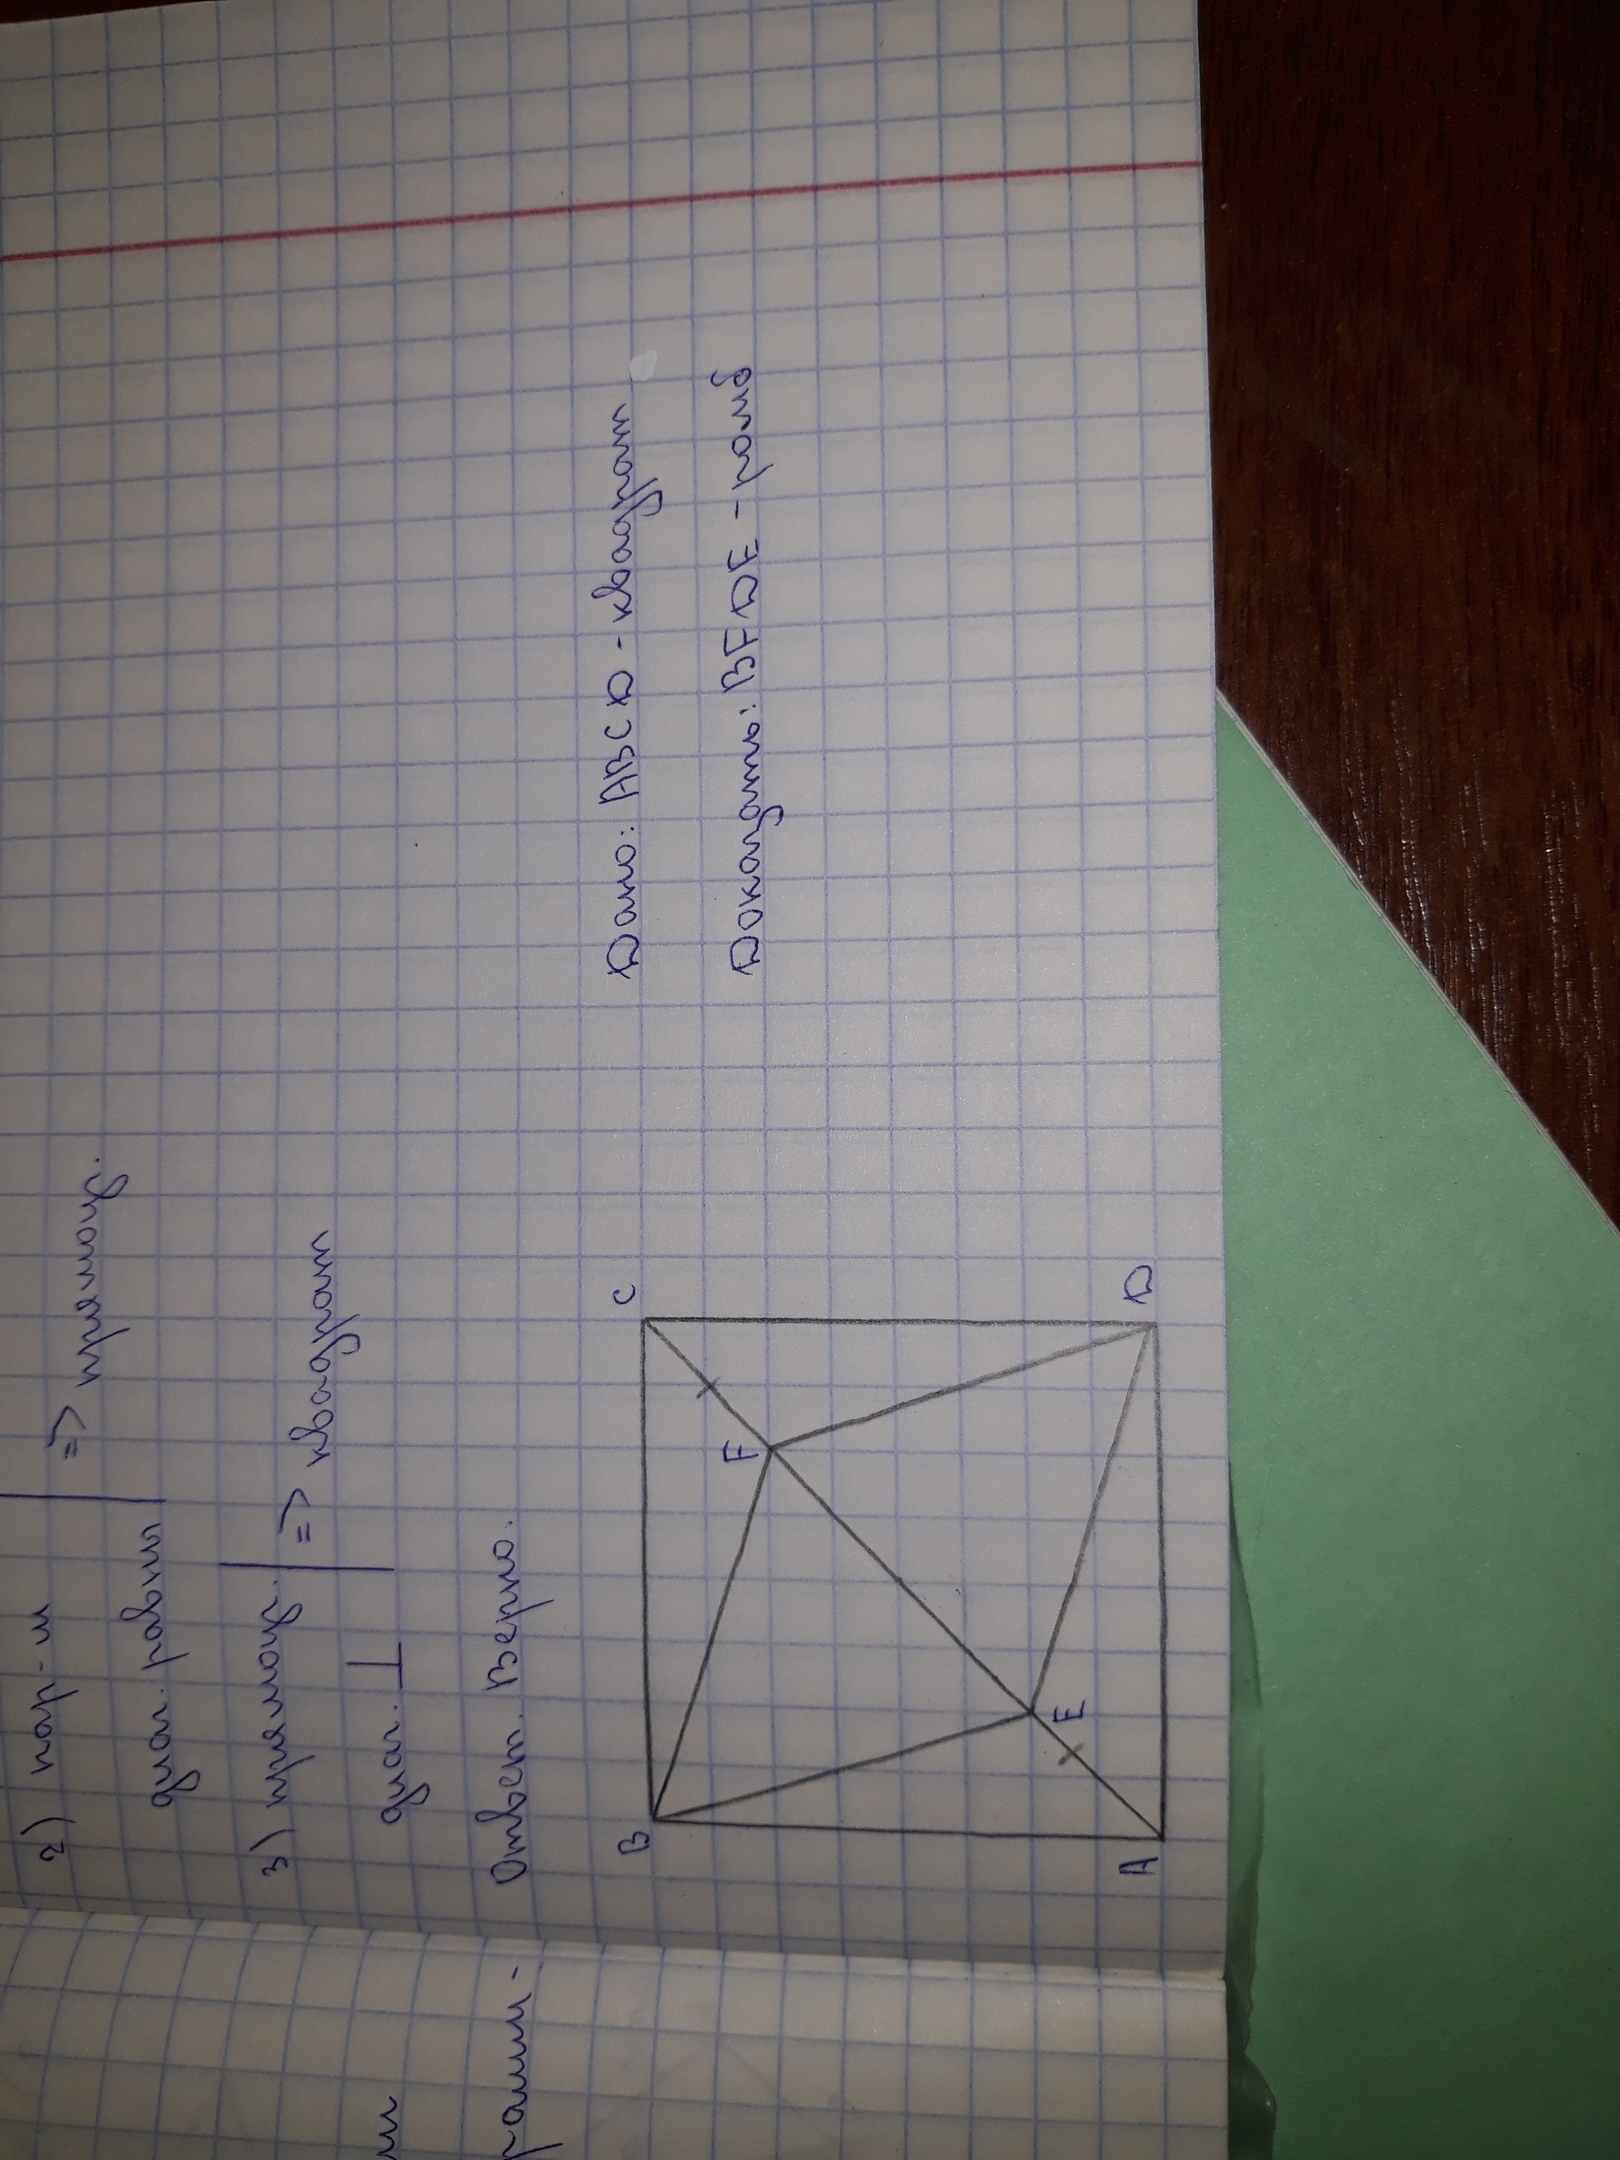 2) пар-м
=> прямоуг.
диаг. равны
3) прямоуг.
=> квадрат
диаг. ⊥
Ответ. Верно.
Дано: ABCD - квадрат
Доказать: BFDE - ромб
B
C
F
E
A
D